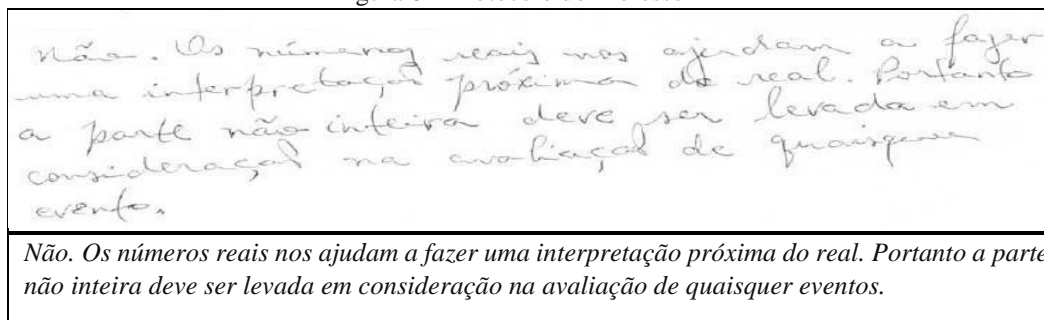 Não. Os números reais nos ajudam a fazer
uma interpretação próxima do real. Portanto
a parte não inteira deve ser levada em
consideração na avaliação de quaisquer
evento.
Não. Os números reais nos ajudam a fazer uma interpretação próxima do real. Portanto a parte
não inteira deve ser levada em consideração na avaliação de quaisquer eventos.